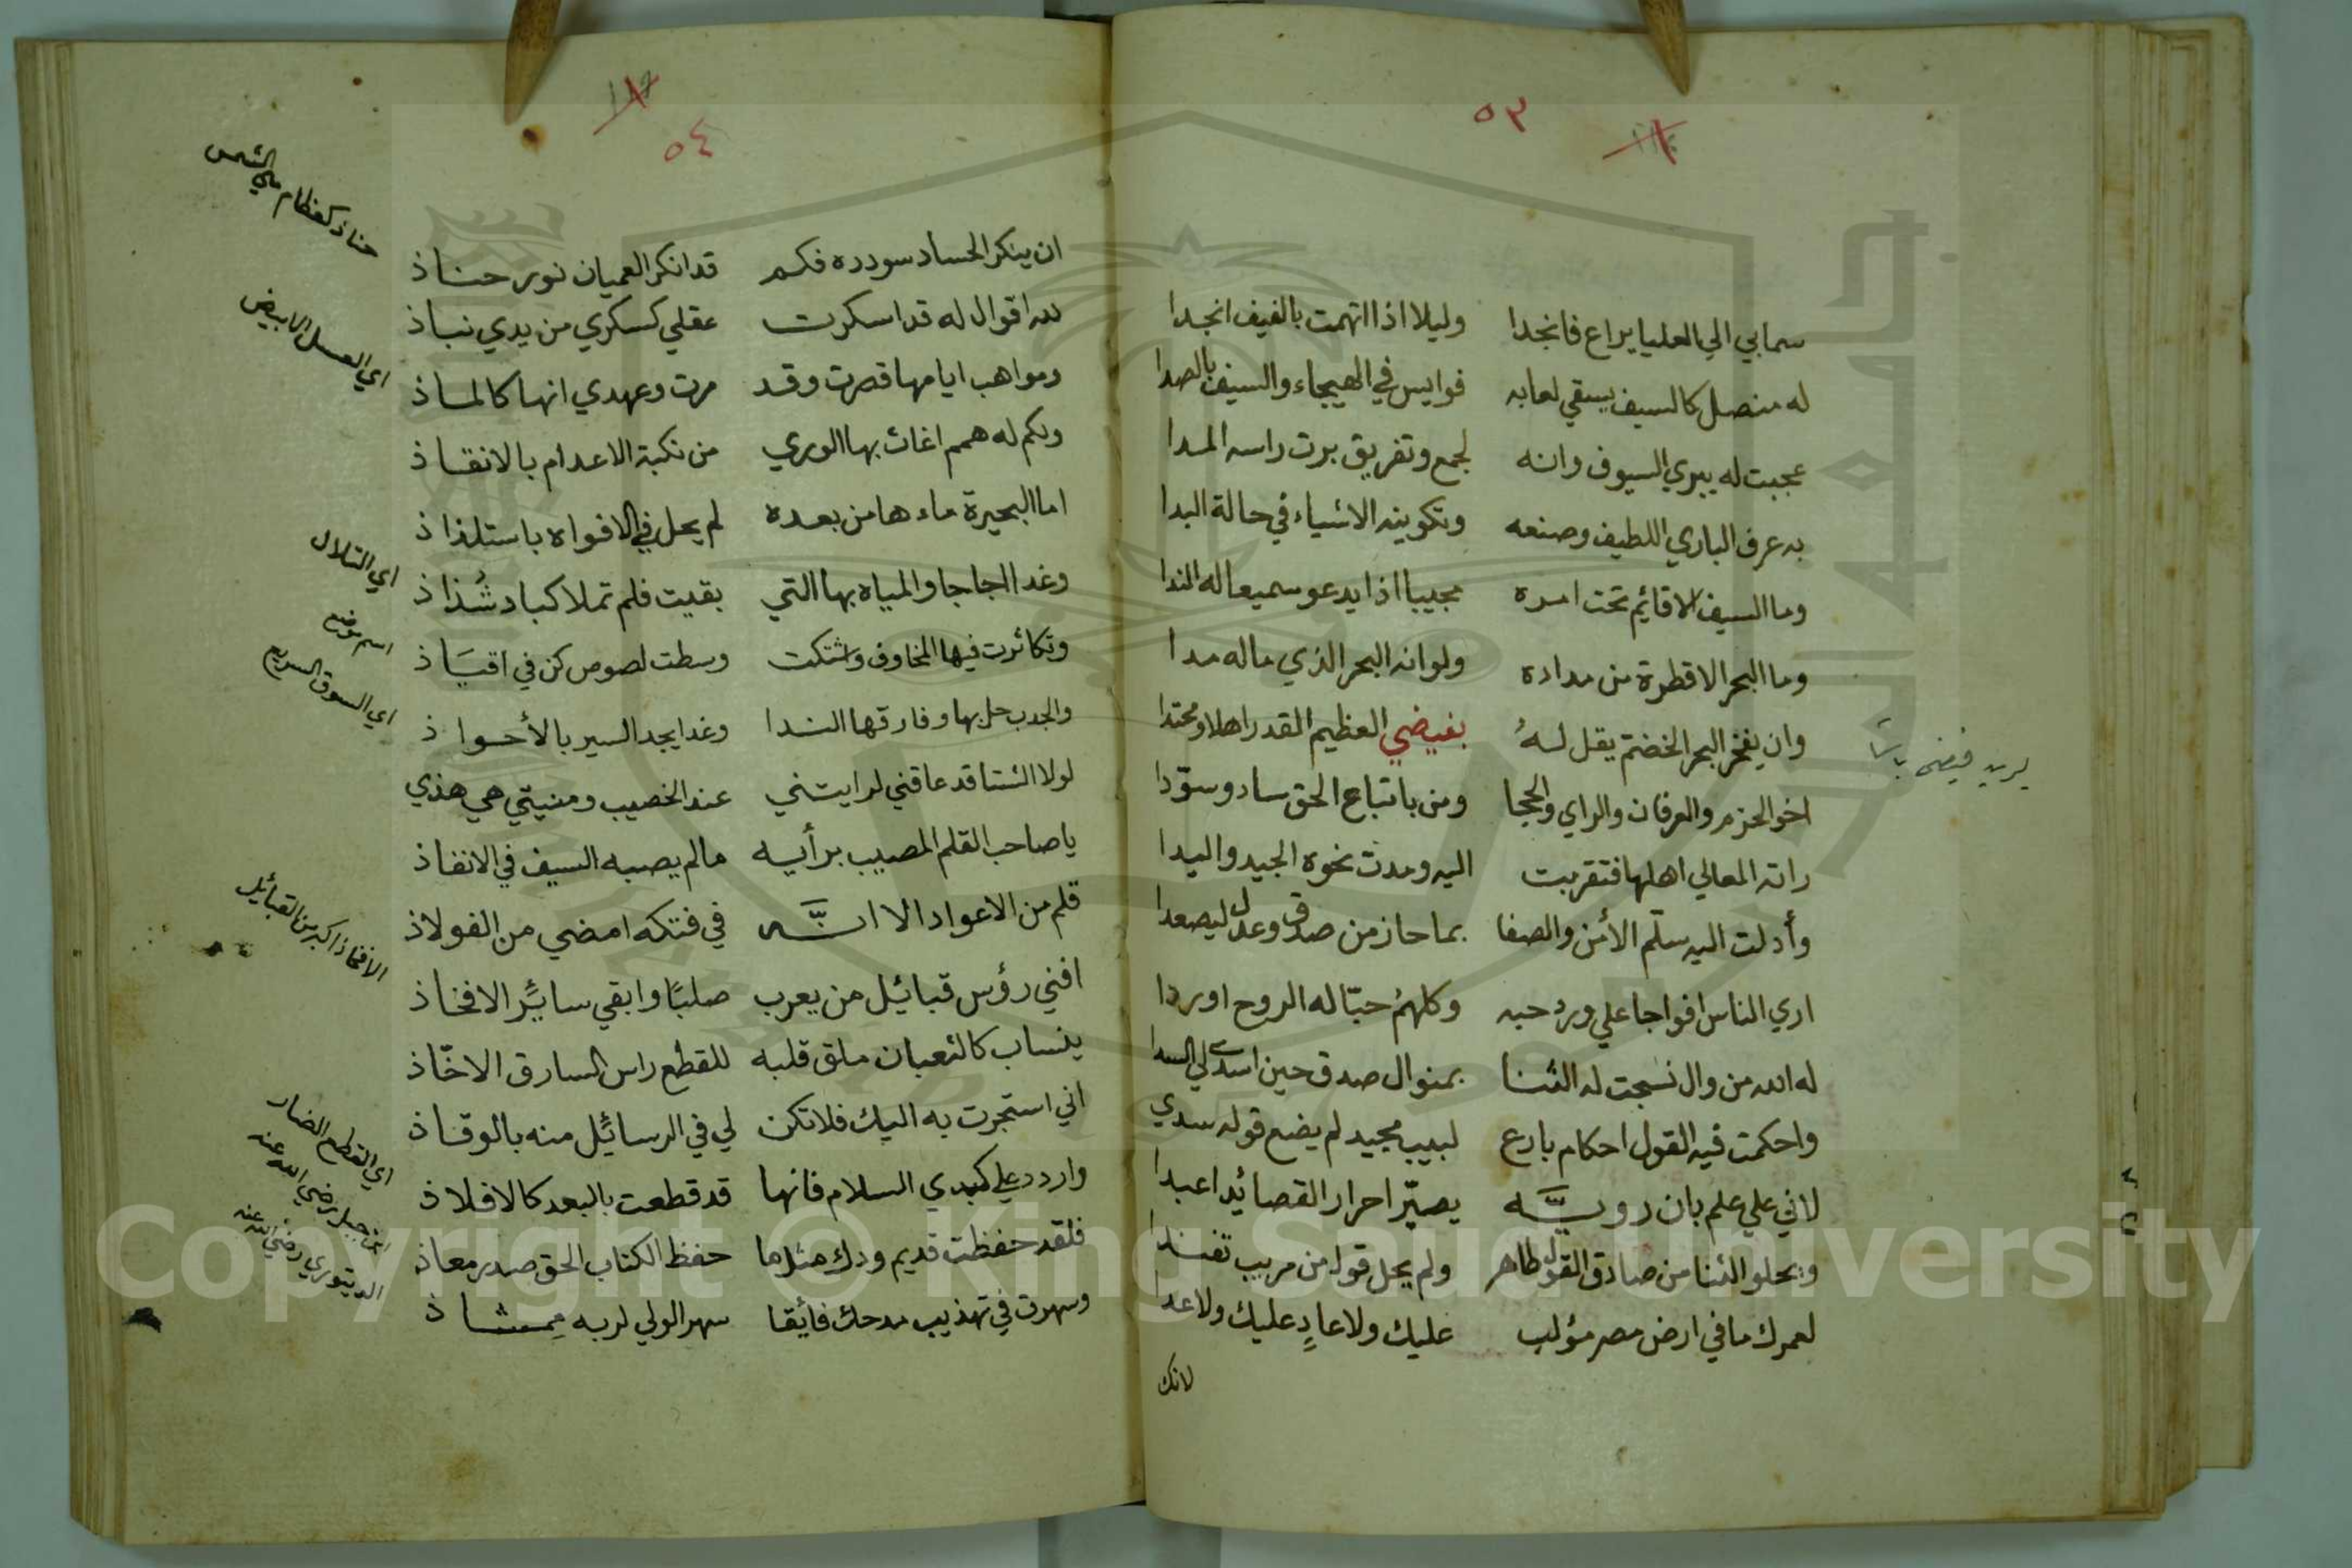 ٥٣
سما بي الي العليا يراع فانجدا وليلا اذا اتهمت بالفيف انجدا
له منصل كالسيف يسقي لعابه فوايس في الهيجاء والسيف بالصدا
عجبت له يبري السيوف وانه لجمع وتفريق برت راسه المدا
به عرف الباري اللطيف وصنعه وتكوينه الاشياء في حالة البدا
وما السيف الا قائيم تحت امره مجيبا اذا يدعو سميعا له الندا
وما البحر الا قطرة من مداده ولو انه البحر الذي ماله مدا
وان يفخر البحر الخضم يقل لهُ بفيضي العظيم القدر اهلا ومحتدا
يريد فيضى باشا
اخو الحزم والعرفان والراي والحجا ومن باتباع الحق ساد وسوّدا
راته المعالي اهلها فتقربت اليه ومدت نحوه الجيد واليدا
وأدلت اليه سلّم الأمن والصفا بما حاز من صدق وعدل ليصعدا
اري الناس افواجا علي ورد حبه وكلهمُ حبّا له الروح اوردا
له الله من وال نسجت له الثنا بمنوال صدق حين اسدى لي السدا
واحكمت فيه القول احكام بارع لبيب مجيد لم يضع قوله سدي
لاني علي علم بان رويّه يصيّر احرار القصائد اعبدا
ويحلو الثنا من صادق القول طاهر ولم يحل قولا من مريب تفندا
لعمرك ما في ارض مصر مؤلب عليك ولا عادٍ عليك ولا عدا
لانك
٥٤
ان ينكر الحساد سودده فكم قد انكر العميان نور حناذ
حناذ كعظام هي الشمس
لله اقوال له قد اسكرت عقلي كسكري من يدي نباذ
ومواهب ايامها قصرت وقد مرت وعهدي انها كالماذ
اي العسل الابيض
ولكم له همم اغاث بها الوري من نكبة الاعدام بالانقاذ
اما البحيرة ماءها من بعده لم يحل في الافواه باستلذاذ
وغدا اجاجا والمياه بها التي بقيت فلم تملا كباد شُذاذ
اي التلال
وتكاثرت فيها المخاوف واشتكت وسطت لصوص كن في اقيَاذ
اسم موضع
والجدب حل بها وفارقها الندا وغدا يجد السير بالأحواذ
اي السوق السريع
لولا الشتا قد عاقني لرايتني عند الخصيب ومنيتي هي هذي
يا صاحب القلم المصيب برأيه مالم يصبه السيف في الانفاذ
قلم من الاعواد الا انَّه في فتكه امضي من الفولاذ
افني رؤس قبائيل من يعرب صلبًا وابقي سائر الافخاذ
الافخاذ اكبر من القبائيل
ينساب كالثعبان ملق قلبه للقطع راس السارق الاخّاذ
اني استجرت به اليك فلا تكن لي في الرسائل منه بالوقاذ
واردد علي كبدي السلام فانها قد قطعت بالبعد كالافلاذ
اي القطع الصغار
فلقد حفظت قديم ودك مثلما حفظ الكتاب الحق صدر معاذ
ابن جبل رضي الله عنه
وسهرت في تهذيب مدحك فائقا سهر الولي لربه ممشاذ
الدينوري رضي الله عنه
Copyright © King Saud University